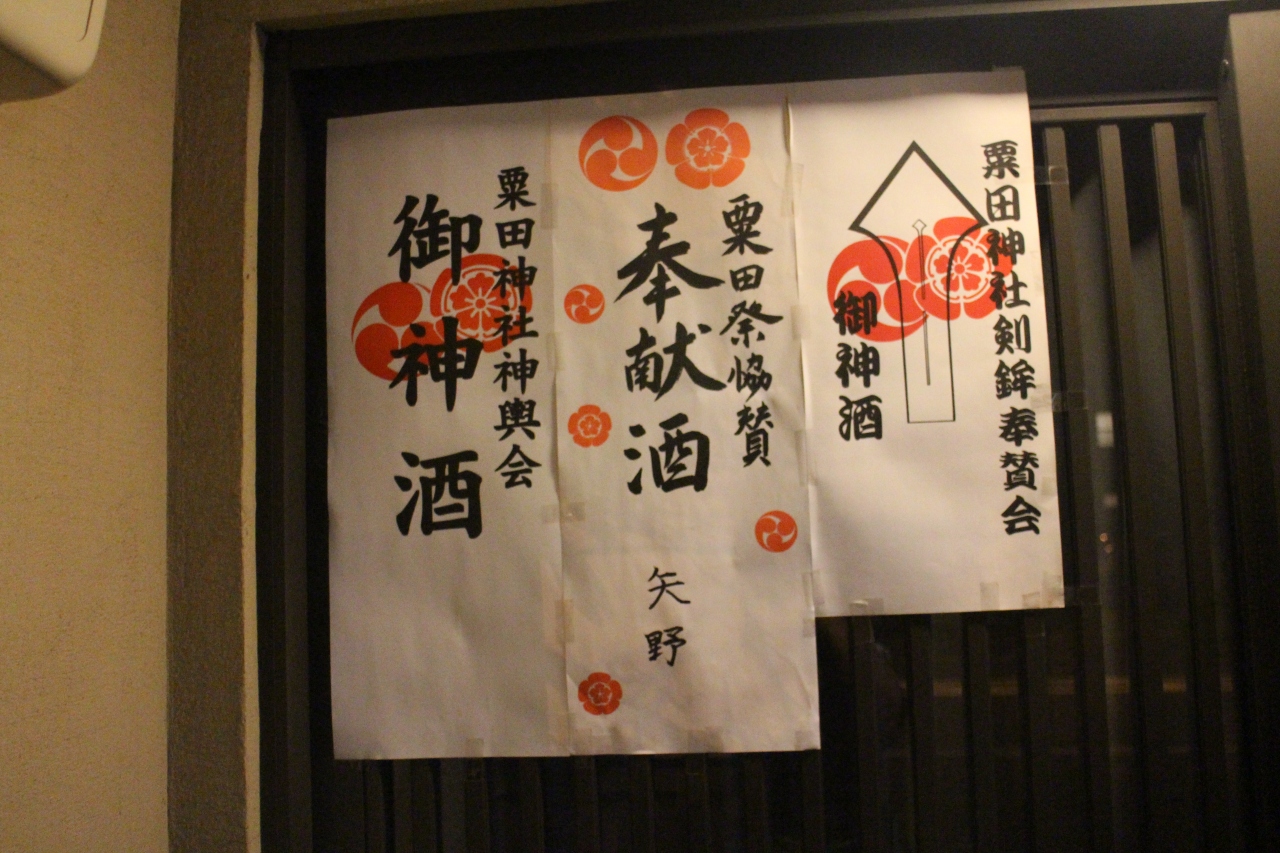 粟田神社剣鉾奉賛会
御神酒
粟田祭協賛
奉献酒
矢野
粟田神社神輿会
御神酒